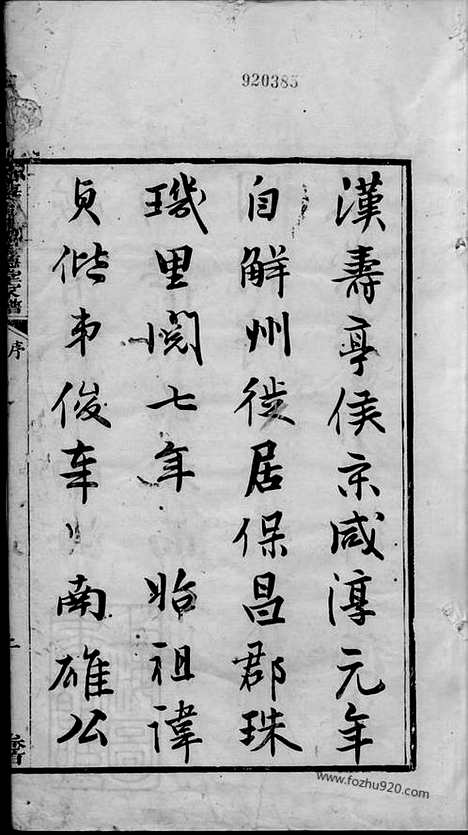 920385
漢壽亭侯宋咸淳元年
自解州徙居保昌郡珠
璣里閱七年 始祖諱
貞偕弟俊南雄公
家譜
序
www.fozhu920.com